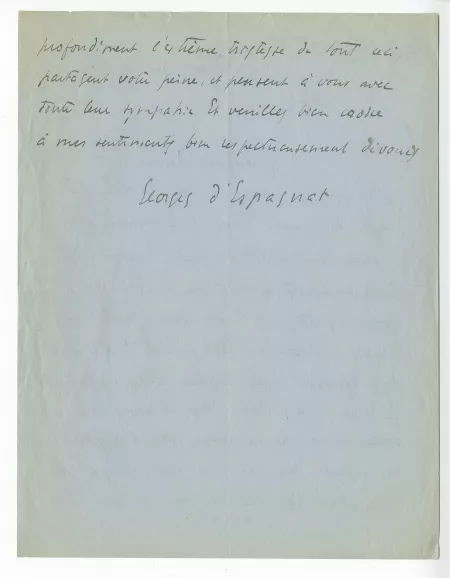 profondément l'extrême tristesse de tout ceci
partagent votre peine, et pensent à vous avec
toute leur sympathie Et veuillez bien croire
à mes sentiments bien respectueusement dévoués
Georges d'Espagnat